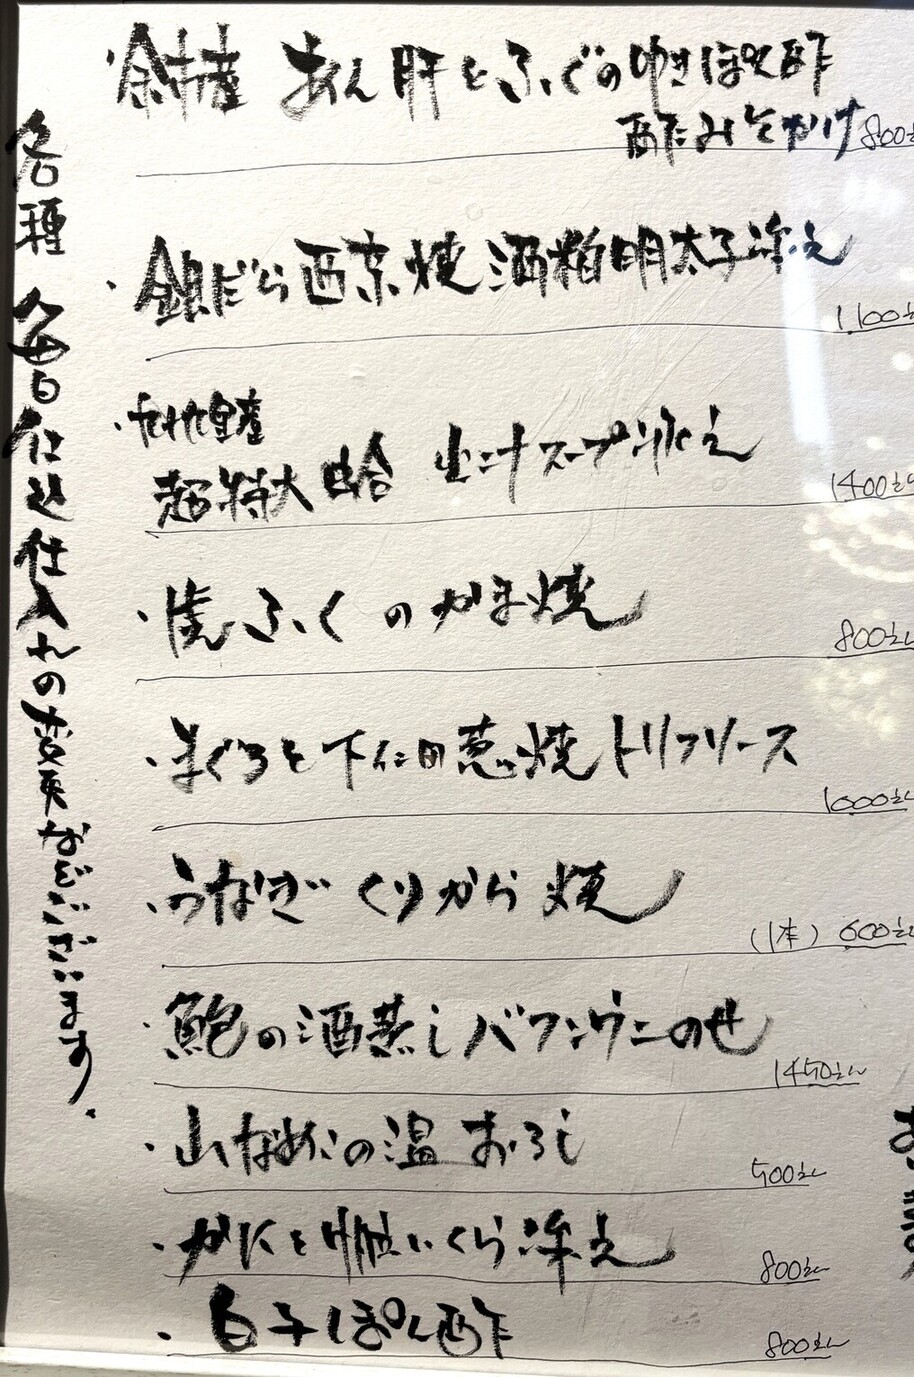 ・余市産 あん肝とふぐのゆきぽん酢
酢みそかけ 800えん
・銀だら西京焼 酒粕明太子添え
1100えん
・九十九里産
超特大 蛤 出汁スープ添え
1400えん
・虎ふくのかま焼
800えん
・まぐろと下仁田葱焼トリフソース
1000えん
・うなぎ くりから焼
(1本) 600えん
・鮑の酒蒸しバフンウニのせ
1450えん
・山なめこの温おろし
500えん
・かにと いくら添え
800えん
・白子ぽん酢
800えん
各種 毎日仕込仕入れの変更などございます.